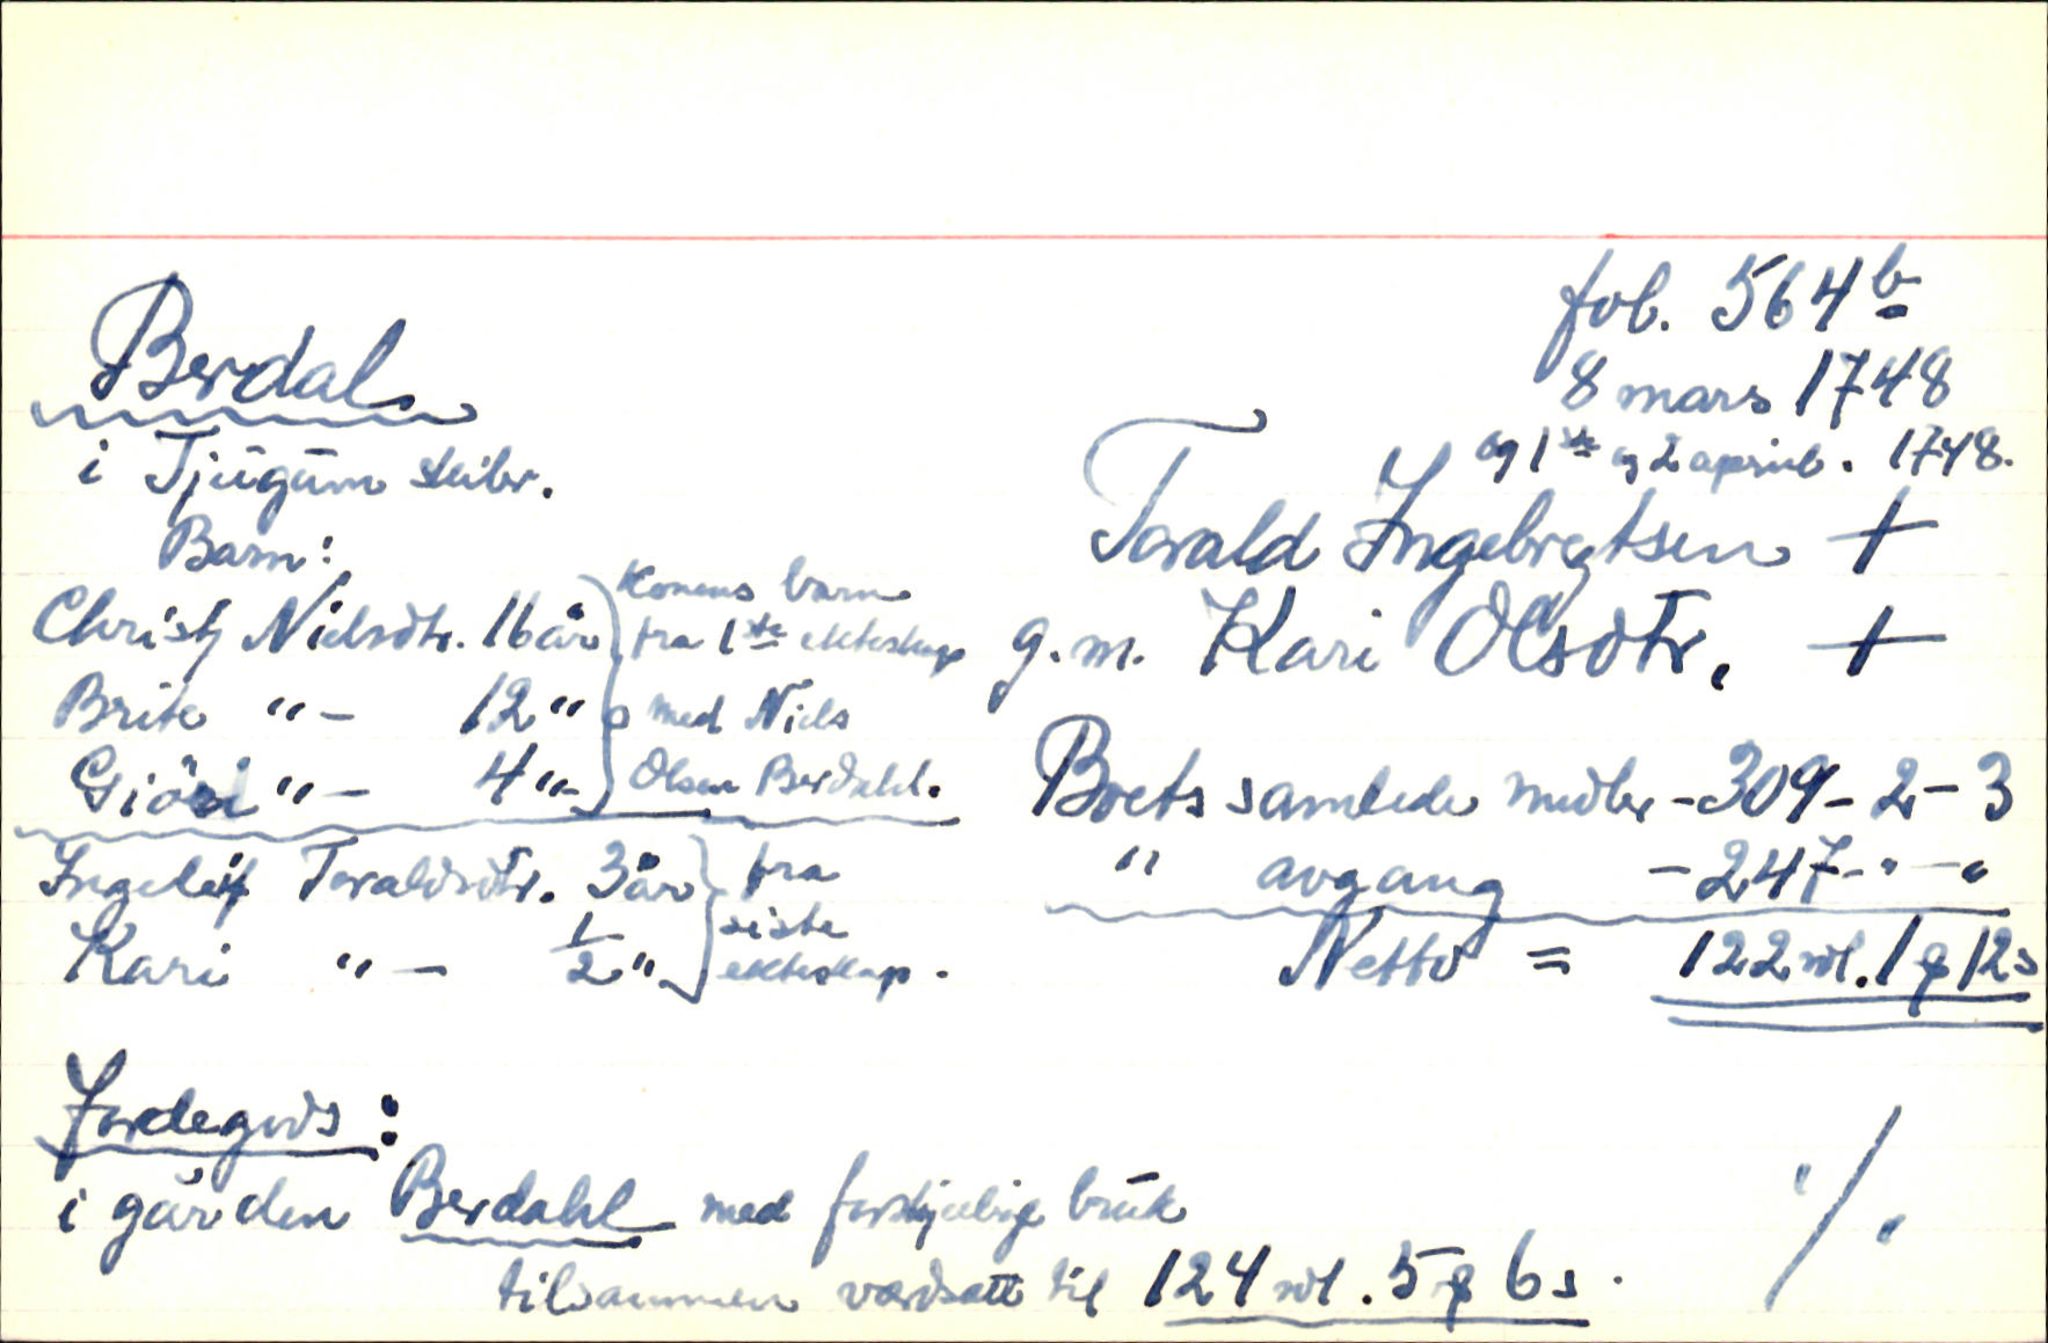 fol. 564 b
8 mars 1748
og 1ste og 2 april. 1748.
Berdal
i Tjugum skibr.
Torald Ingebrigtsen +
g.m. Kari Olsdtr. +
Barn:
Christj Nielsdtr. 16 år
Brite "- 12 "
Giöri "- 4 "-
Konens barn
fra 1ste ekteskap
med Niels
Olsen Berdahl.
Ingeleif Toraldsdtr. 3 år
Kari "- 1/2 "
fra
siste
ekteskap.
Boets samlede midler - 309 - 2 - 3
" avgang - 247 - " - "
Netto = 122 rdl. 1 ƒ 12 s
Jordegods:
i gården Berdahl med forskjelig bruk
tilsammen værdsatt til 124 rdl. 5 ƒ 6 s.
./.